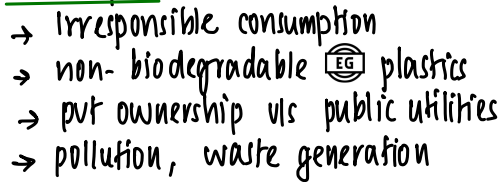 → Irresponsible consumption
→ non-biodegradable EG plastics
→ pvt ownership v/s public utilities
→ pollution, waste generation